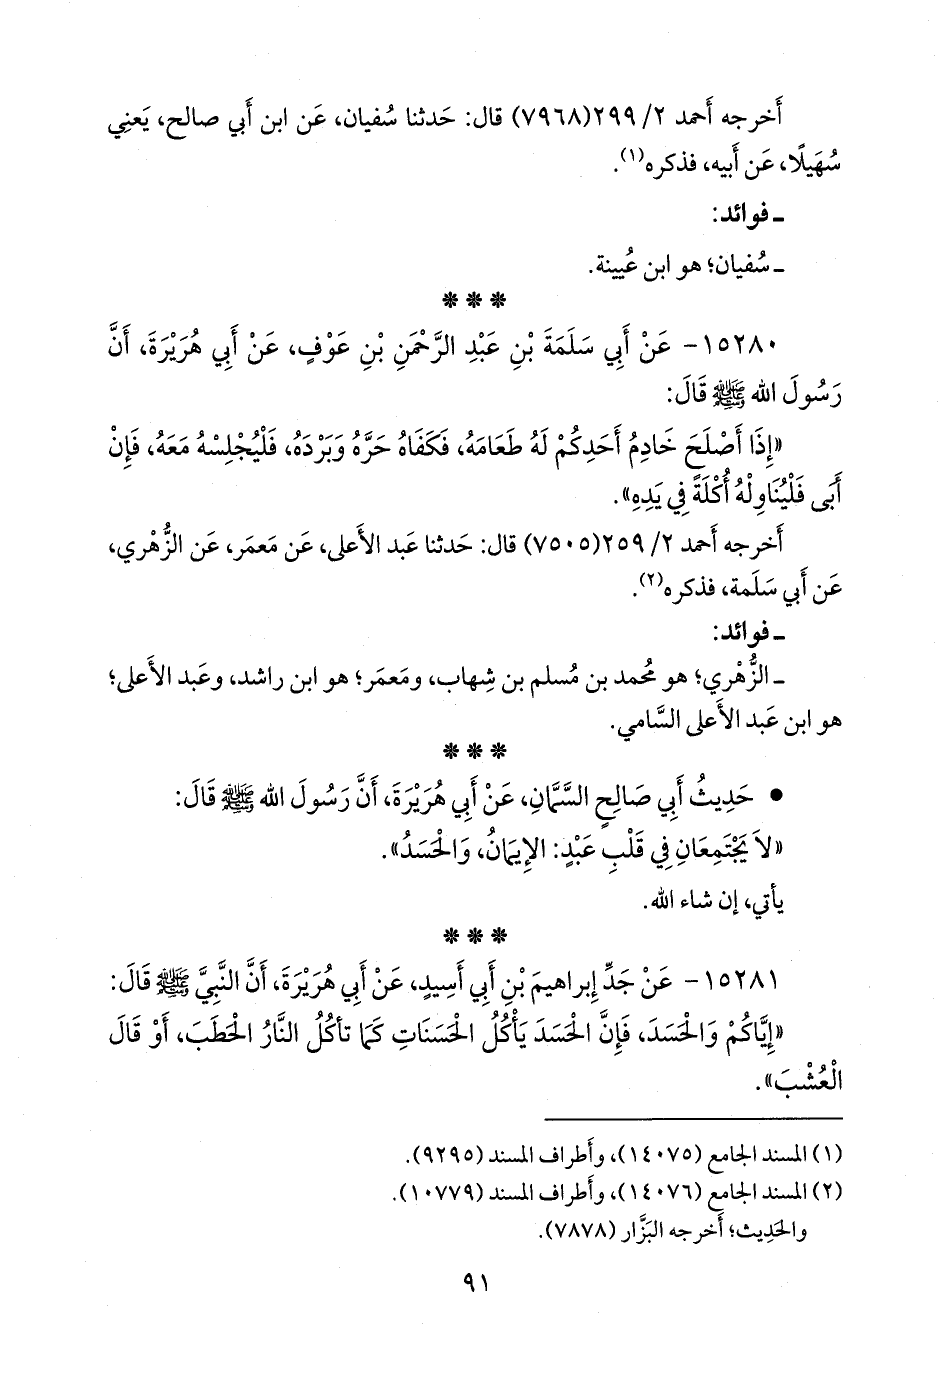 أَخرجه أَحمد ٢/ ٢٩٩(٧٩٦٨) قال: حَدثنا سُفيان، عَن ابن أَبي صالح، يَعنِي
سُهَيلًا، عَن أَبيه، فذكره(١).
ـ فوائد:
ـ سُفيان؛ هو ابن عُيينة.
***
١٥٢٨٠- عَنْ أَبِي سَلَمَةَ بْنِ عَبْدِ الرَّحْمَنِ بْنِ عَوْفٍ، عَنْ أَبِي هُرَيْرَةَ، أَنَّ
رَسُولَ الله ﷺ قَالَ:
«إِذَا أَصْلَحَ خَادِمُ أَحَدِكُمْ لَهُ طَعَامَهُ، فَكَفَاهُ حَرَّهُ وَبَرْدَهُ، فَلْيُجْلِسْهُ مَعَهُ، فَإِنْ
أَبَى فَلْيُنَاوِلْهُ أُكْلَةً فِي يَدِهِ».
أَخرجه أَحمد ٢/ ٢٥٩(٧٥٠٥) قال: حَدثنا عَبد الأَعلى، عَن مَعمَر، عَن الزُّهْري،
عَن أَبي سَلَمة، فذكره(٢).
ـ فوائد:
ـ الزُّهْري؛ هو مُحمد بن مُسلم بن شِهاب، ومَعمَر؛ هو ابن راشد، وعَبد الأَعلى؛
هو ابن عَبد الأَعلى السَّامي.
***
• حَدِيثُ أَبِي صَالِحٍ السَّمَّانِ، عَنْ أَبِي هُرَيْرَةَ، أَنَّ رَسُولَ الله ﷺ قَالَ:
«لاَ يَجْتَمِعَانِ فِي قَلْبِ عَبْدٍ: الإِيمَانُ، وَالْحَسَدُ».
يأتي، إن شاء الله.
***
١٥٢٨١- عَنْ جَدِّ إِبراهيمَ بْنِ أَبِي أَسِيدٍ، عَنْ أَبِي هُرَيْرَةَ، أَنَّ النَّبِيَّ ﷺ قَالَ:
«إِيَّاكُمْ وَالْحَسَدَ، فَإِنَّ الْحَسَدَ يَأْكُلُ الْحَسَنَاتِ كَمَا تأكُلُ النَّارُ الْحَطَبَ، أَوْ قَالَ
الْعُشْبَ».
(١) المسند الجامع (١٤٠٧٥)، وأَطراف المسند (٩٢٩٥).
(٢) المسند الجامع (١٤٠٧٦)، وأَطراف المسند (١٠٧٧٩).
والحَدِيث؛ أَخرجه البَزَّار (٧٨٧٨).
٩١